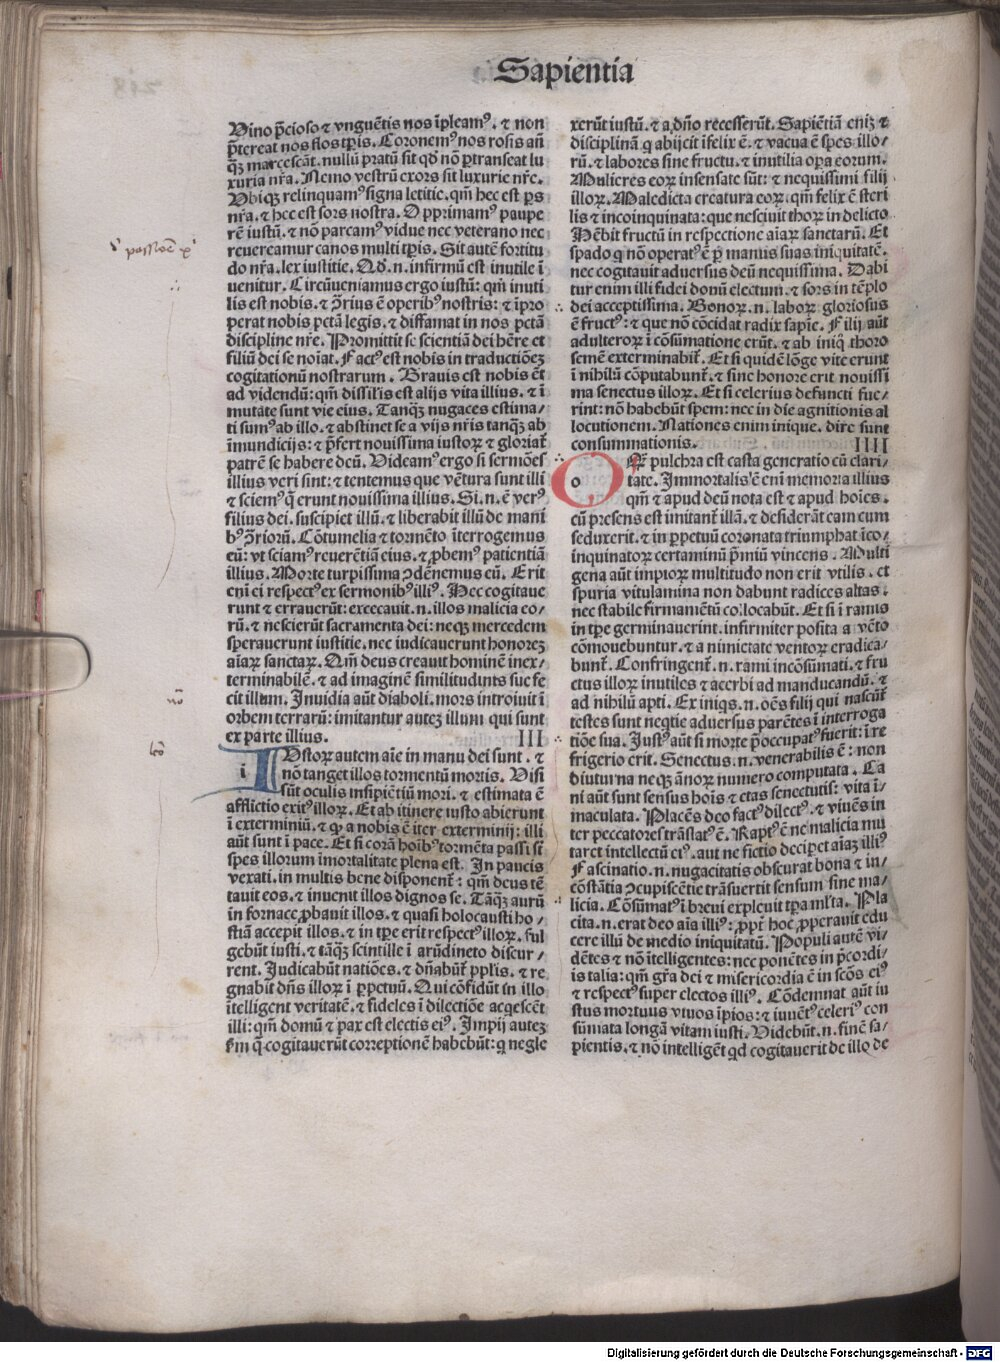 Sapientia
Vino p̄cioso ⁊ vnguētis nos īpleamꝰ. ⁊ non
p̄tereat nos flos tꝑis. Coronemꝰ nos rosis añ
qꝫ marcescāt. nullū pratū sit qd̄ nō ꝑtranseat lu
xuria nr̄a. Nemo vestrū exors sit luxurie nr̄e.
Vbiqꝫ relinquamꝰ signa letitie. qm̄ hec est ꝑs
nr̄a. ⁊ hec est sors nostra. Opprimamꝰ paupe
rē iustū. ⁊ nō parcamꝰ vidue nec veterano nec
reuereamur canos multi tꝑis. Sit autē fortitu
do nr̄a. lex iustitie. Qd̄.n. infirmū est inutile ī
uenitur. Circūueniamus ergo iustū: qm̄ inuti
lis est nobis. ⁊ ꝯ̄rius ē operibꝰ nostris: ⁊ īpro
perat nobis pctā legis. ⁊ diffamat in nos pctā
discipline nr̄e. Promittit se scientiā dei hēre et
filiū dei se noīat. Factꝰ est nobis in traductiōeꝫ
cogitationū nostrarum. Grauis est nobis ēt
ad videndū: qm̄ dissīlis est alijs vita illius. ⁊ ī
mutate sunt vie eius. Tanqꝫ nugaces estima/
ti sumꝰ ab illo. ⁊ abstinet se a vijs nr̄is tanqꝫ ab
īmundicijs: ⁊ p̄fert nouissima iustoꝝ ⁊ gloriat̄
patrē se habere deū. Videamꝰ ergo si sermōes
illius veri sint: ⁊ tentemus que vētura sunt illi
⁊ sciemꝰ q̄ erunt nouissima illius. Si.n.ē verꝰ
filius dei. suscipiet illū. ⁊ liberabit illū de mani
bꝰ ꝯ̄riorū. Cōtumelia ⁊ tormēto īterrogemus
eū: vt sciamꝰ reuerētiā eiꝰ. ⁊ ꝓbemꝰ patientiā
illius. Morte turpissima ꝯdēnemus eū. Erit
eni ei respectꝰ ex sermonibꝰ illiꝰ. Hec cogitaue
runt ⁊ errauerūt: excecauit.n. illos malicia eo/
rū. ⁊ nescierūt sacramenta dei: neqꝫ mercedem
sperauerunt iustitie. nec iudicauerunt honoreꝫ
aīaꝝ sanctaꝝ. Qm̄ deus creauit hominē inex/
terminabilē. ⁊ ad imaginē similitudinis sue fe
cit illum. Inuidia aūt diaboli. mors introiuit ī
orbem terrarū: imitantur auteꝫ illum qui sunt
ex parte illius. III
IVstoꝝ autem aīe in manu dei sunt. ⁊
nō tanget illos tormentū mortis. Visi
sūt oculis insipiētiū mori. ⁊ estimata ē
afflictio exitꝰ illoꝝ. Et ab itinere iusto abierunt
ī exterminiū. ⁊ qd̄ a nobis ē iter exterminij: illi
aūt sunt ī pace. Et si corā hoībꝰ tormēta passi sī
spes illorum īmortalitate plena est. In paucis
vexati. in multis bene disponent̄: qm̄ deus tē
tauit eos. ⁊ inuenit illos dignos se. Tāqꝫ aurū
in fornace ꝓbauit illos. ⁊ quasi holocausti ho/
stiā accepit illos. ⁊ in tꝑe erit respectꝰ illoꝝ. ful
gebūt iusti. ⁊ tāqꝫ scintille ī arūdineto discur/
rent. Judicabūt natiōes. ⁊ dn̄abūt̄ ppl̄is. ⁊ re
gnabit dn̄s illoꝝ ī ꝑpetuū. Qui cōfidūt in illo
ītelligent veritatē. ⁊ fideles ī dilectiōe acq̄escēt
illi: qm̄ donū ⁊ pax est electis eiꝰ. Impij auteꝫ
ẜm q̄ cogitauerūt correptionē habebūt: q̄ negle
xerūt iustū. ⁊ a dn̄o recesserūt. Sapiētiā eniꝫ ⁊
disciplinā q̄ abijcit īfelix ē. ⁊ vacua ē spes illo/
rū. ⁊ labores sine fructu. ⁊ inutilia oꝑa eorum.
Mulieres eoꝝ insensate sūt: ⁊ nequissimi filij
illoꝝ. Maledicta creatura eoꝝ. qm̄ felix ē steri
lis ⁊ incoinquinata: que nesciuit thoꝝ in delicto
Hēbit fructū in respectione aīaꝝ sanctarū. Et
spado q̄ nō operatꝰ ē ꝑ manus suas iniquitatē.
nec cogitauit aduersus deū nequissima. Dabi
tur enim illi fidei donū electum. ⁊ sors in tēplo
dei acceptissima. Bonoꝝ.n. laboꝝ gloriosus
ē fructꝰ: ⁊ que nō cōcidat radix sapīe. Filij aūt
adulteroꝝ ī cōsūmatione erūt. ⁊ ab iniq̄ thoro
semē exterminabit̄. Et si quidē lōge vite erunt
ī nihilū cōputabunt̄. ⁊ sine honore erit nouissi
ma senectus illoꝝ. Et si celerius defuncti fue/
rint: nō habebūt spem: nec in die agnitionis al
locutionem. Nationes enim inique. dire sunt
consummationis. IIII
O Q̄ꝫ pulchra est casta generatio cū clari/
tate. Immortalis ē eni memoria illius
qm̄ ⁊ apud deū nota est ⁊ apud hoīes.
cū presens est imitant̄ illā. ⁊ desiderāt eam cum
se duxerit. ⁊ in ꝑpetuū coronata triumphat īco/
inquinatoꝝ certaminū p̄miū vincens. Multi
gena aūt impioꝝ multitudo non erit vtilis. et
spuria vitulamina non dabunt radices altas.
nec stabile firmamētū collocabūt. Et si ī ramis
in tꝑe germinauerint. infirmiter posita a vēto
cōmouebuntur. ⁊ a nimietate ventoꝝ eradica/
bunt̄. Confringent̄.n. rami incōsūmati. ⁊ fru
ctus illoꝝ inutiles ⁊ acerbi ad manducandū. ⁊
ad nihilū apti. Ex iniqs.n. oēs filij qui nascūt̄
testes sunt neqtie aduersus parētes ī interroga
tiōe sua. Justꝰ aūt si morte p̄occupatꝰ fuerit: ī re
frigerio erit. Senectus.n. venerabilis ē: non
diuturna neqꝫ ānoꝝ numero computata. Ca
ni aūt sunt sensus hoīs ⁊ etas senectutis: vita ī/
maculata. Placēs deo factꝰ dilectꝰ. ⁊ viuēs in
ter peccatores trāslatꝰ ē. Raptꝰ ē ne malicia mu
taret intellectū eiꝰ. aut ne fictio deciperet aīaꝫ illiꝰ
Fascinatio.n. nugacitatis obscurat bona ⁊ in/
cōstātia ꝯcupiscētie trāsuertit sensum sine ma/
licia. Cōsūmatꝰ ī breui expleuit tꝑa ml̄ta. Pla
cita.n. erat deo aīa illiꝰ: ꝓpt̄ hoc ꝓperauit edu
cere illū de medio iniquitatū. Populi autē vi/
dētes ⁊ nō ītelligentes: nec ponētes in p̄cordi/
is talia: qm̄ gr̄a dei ⁊ misericordia ē in scōs eiꝰ
⁊ respectꝰ super electos illiꝰ. Cōdemnat aūt iu
stus mortuus viuos īpios: ⁊ iuuētꝰ celeriꝰ con
sūmata longā vitam iusti. Videbūt.n. finē sa/
pientis. ⁊ nō intelligēt qd̄ cogitauerit de illo de
Digitalisierung gefördert durch die Deutsche Forschungsgemeinschaft - DFG